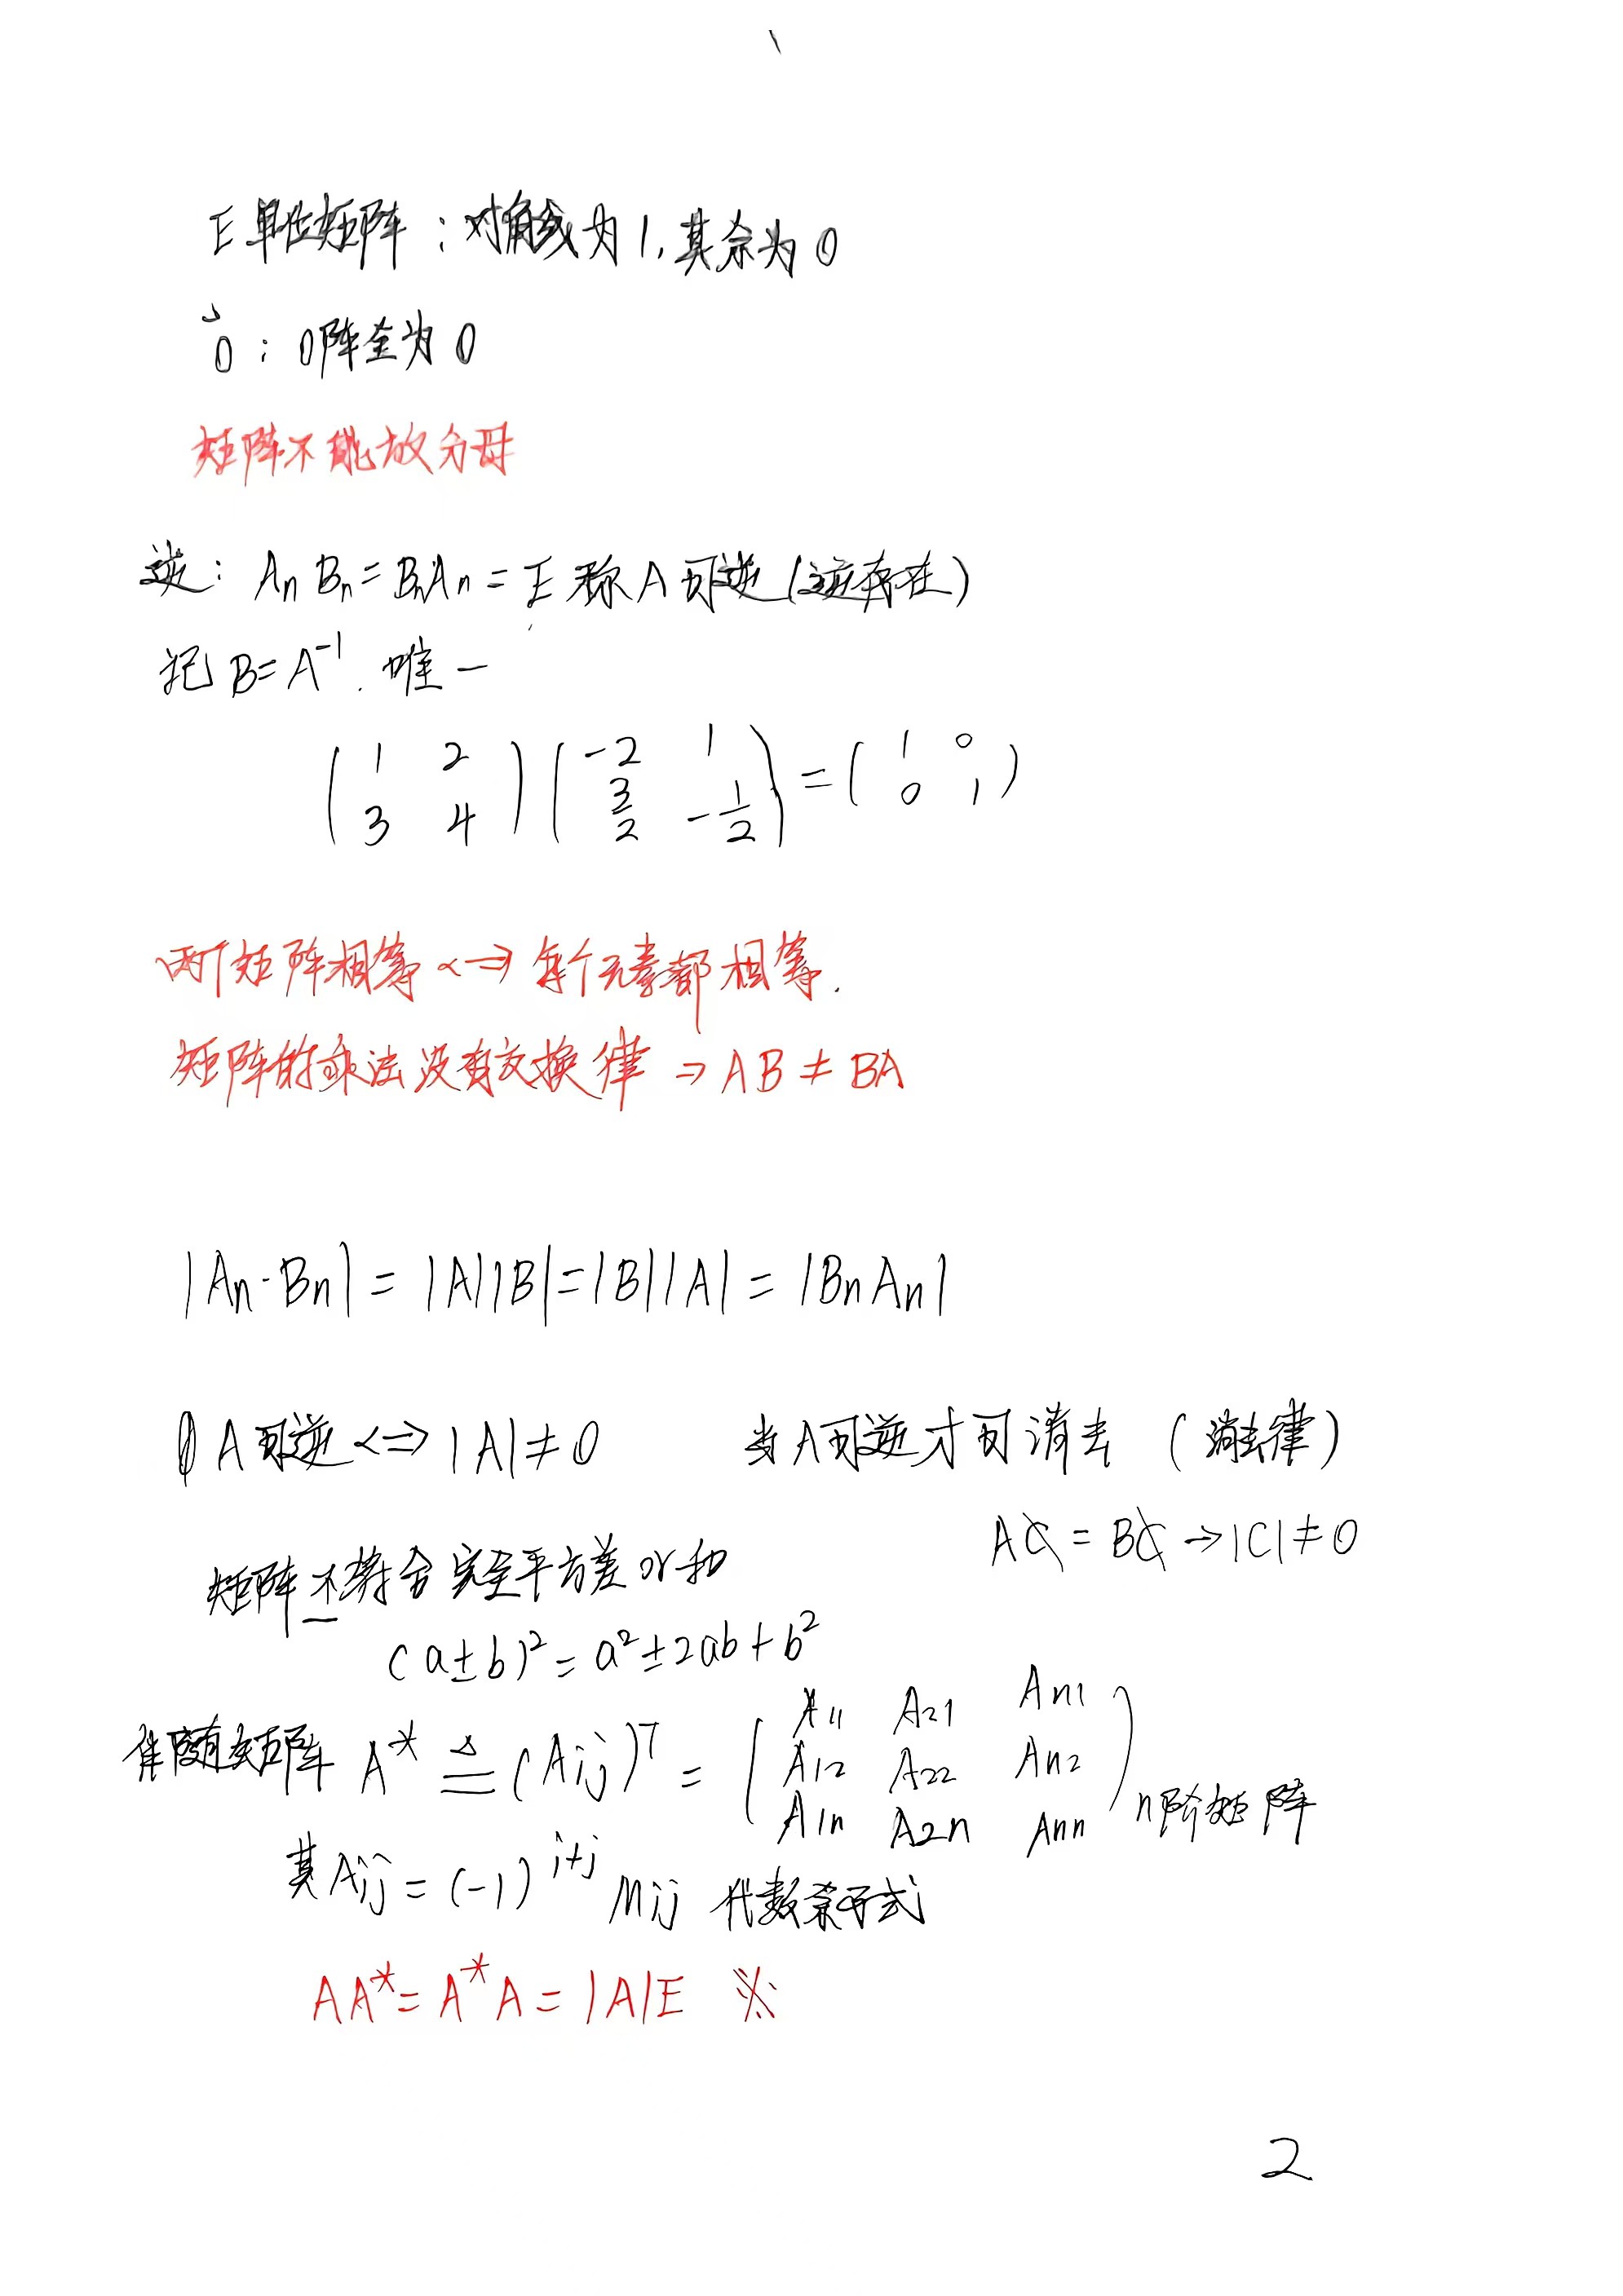 E单位矩阵：对角线为1,其余为0
0：0阵全为0
矩阵不能放分母
逆：AₙBₙ=BₙAₙ=E 称A可逆(逆存在)
记B=A⁻¹.唯一
(1 2
3 4)(-2 1
3/2 -1/2)=(1 0
0 1)
两个矩阵相等<=>每个元素都相等.
矩阵的乘法没有交换律 => AB≠BA
|Aₙ·Bₙ|=|A||B|=|B||A|=|BₙAₙ|
A可逆<=>|A|≠0 当A可逆才可消去(消去律)
AC=BC→|C|≠0
矩阵不符合完全平方差or和
(a±b)²=a²±2ab+b²
伴随矩阵 A* ≜ (Aij)ᵀ = (A11 A21 An1
A12 A22 An2
A1n A2n Ann) n阶矩阵
其Aij=(-1)^(i+j) Mij 代数余子式
AA*=A*A=|A|E ※
2